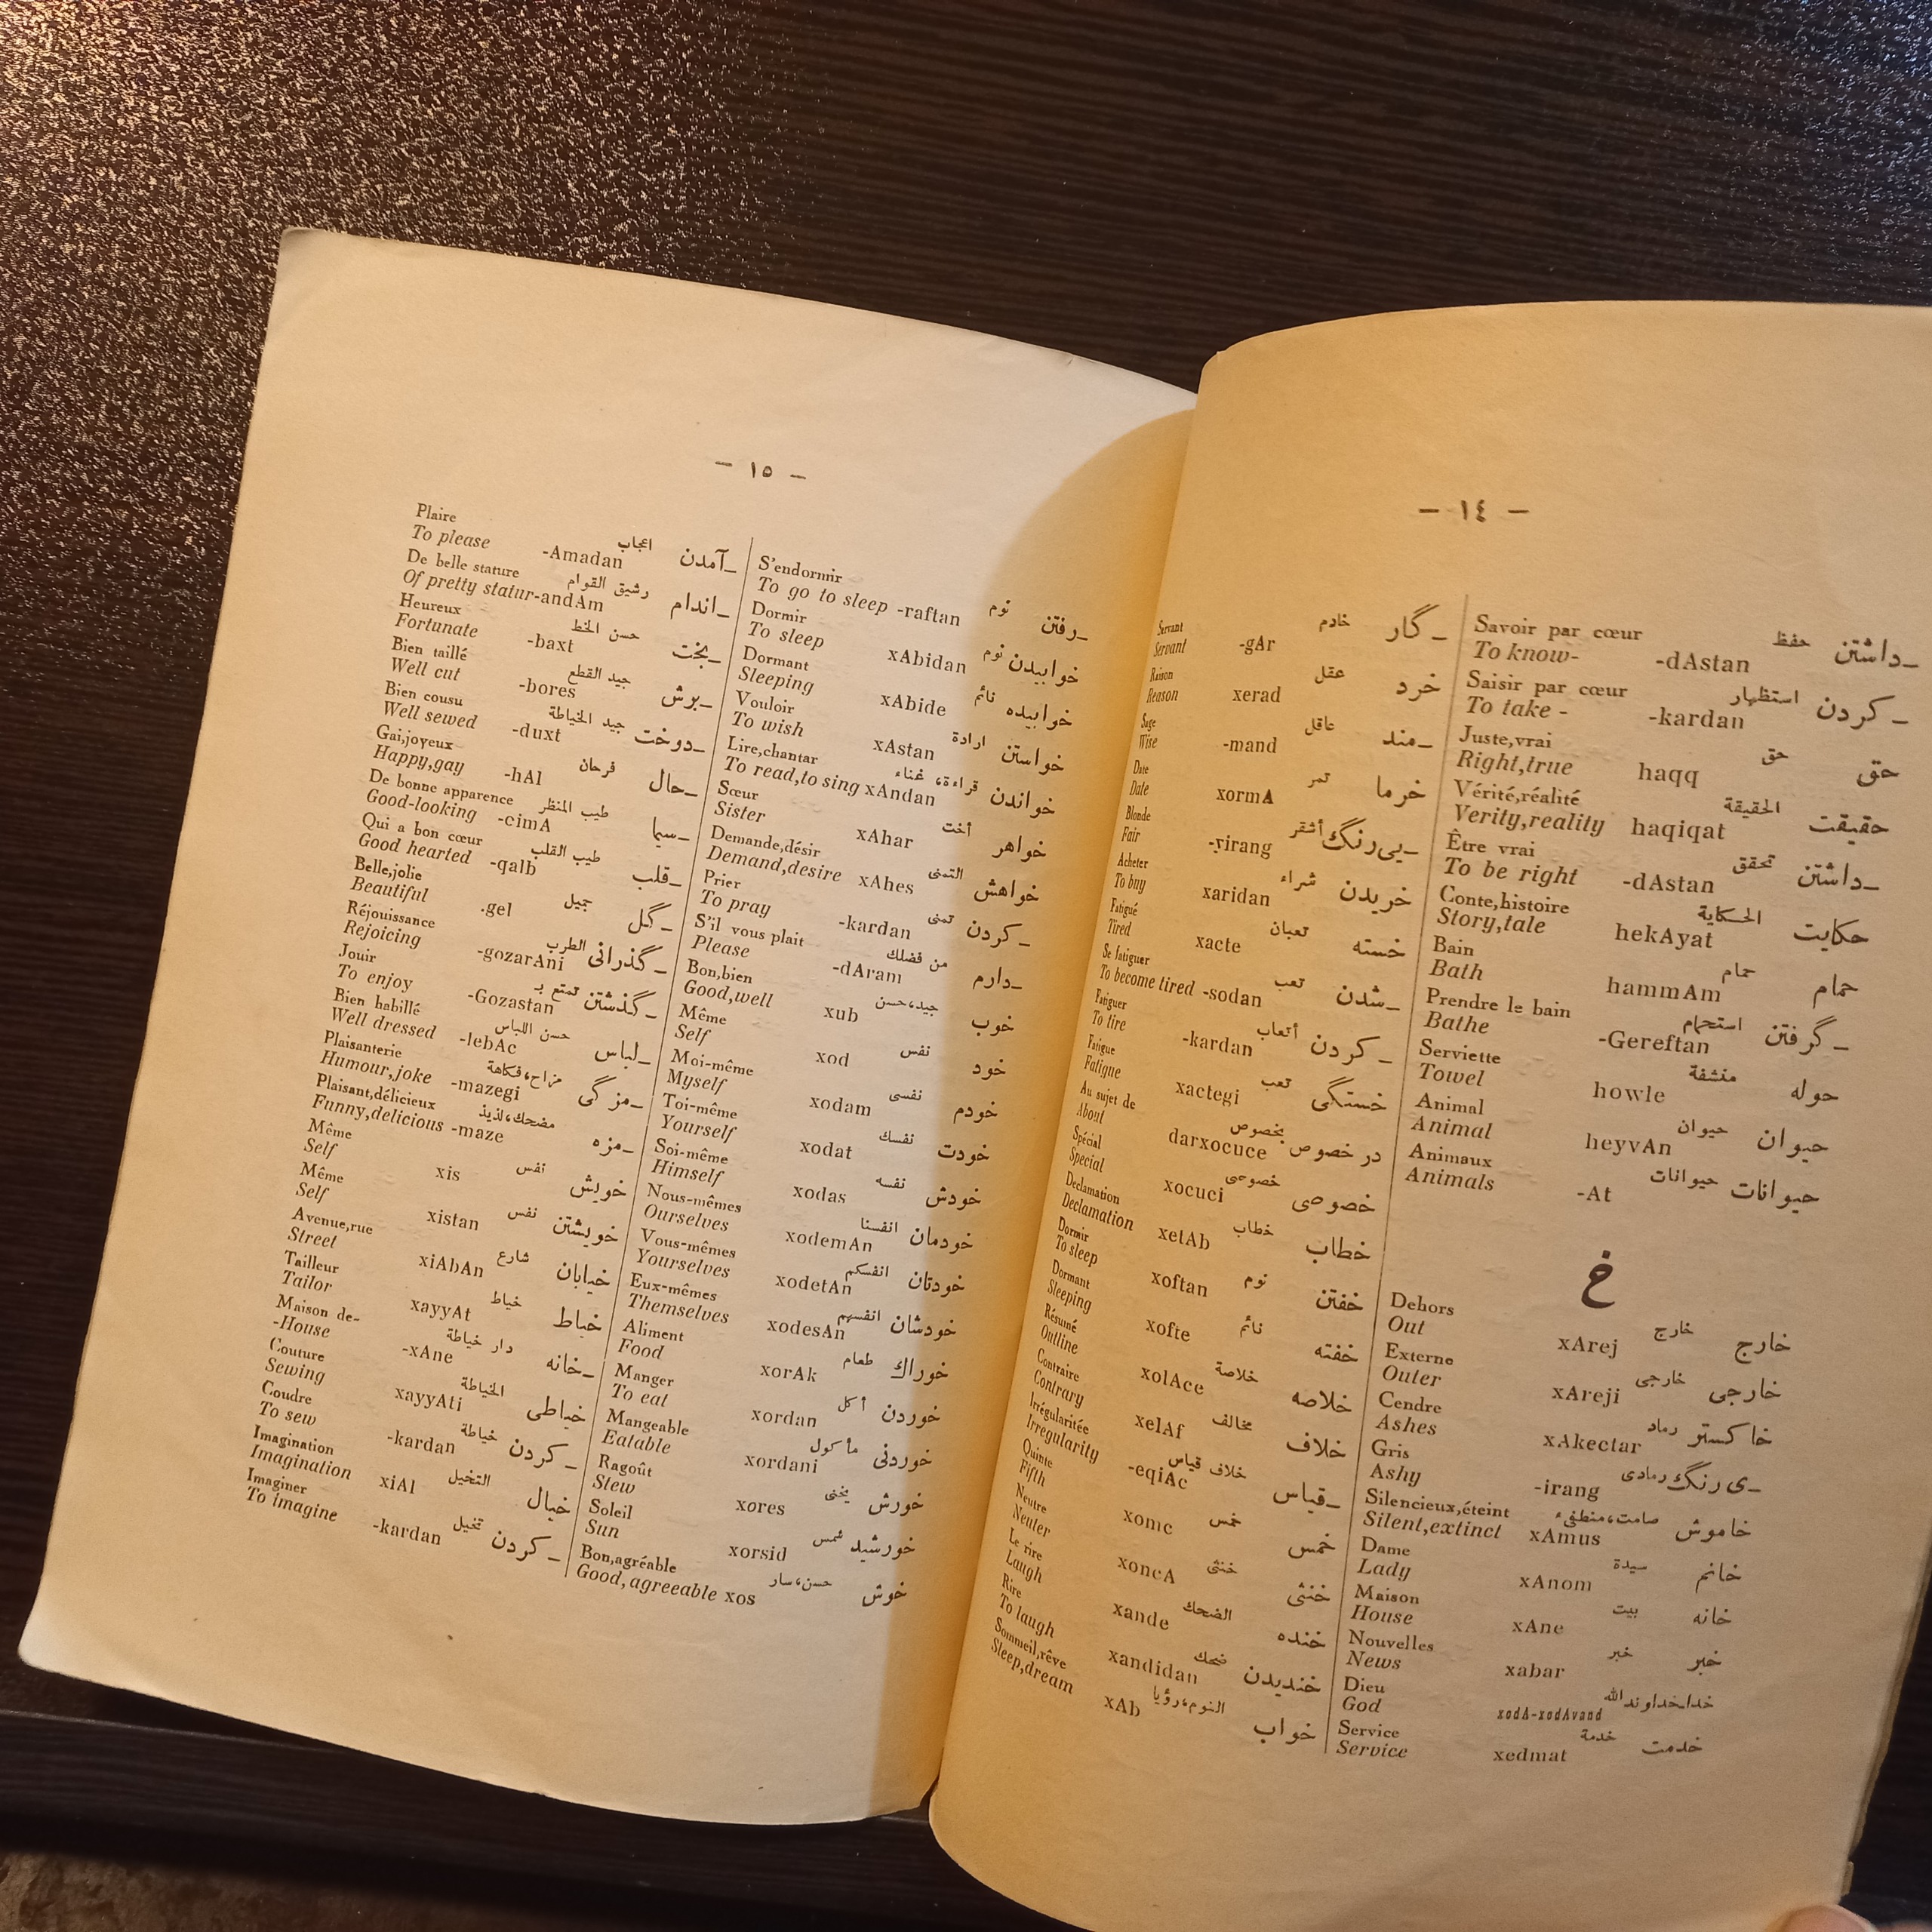 — ١٤ —
Savoir par cœur
To know- -dAstan حفظ ـداشتن
Saisir par cœur
To take - -kardan استظهار ـ كردن
Juste,vrai
Right,true haqq حق حق
Vérité,réalité
Verity,reality haqiqat الحقيقة حقيقت
Être vrai
To be right -dAstan تحقق ـداشتن
Conte,histoire
Story,tale hekAyat الحكاية حكايت
Bain
Bath hammAm حمام حمام
Prendre le bain
Bathe -Gereftan استحمام ـ گرفتن
Serviette
Towel howle منشفة حوله
Animal
Animal heyvAn حيوان حيوان
Animaux
Animals -At حيوانات حيوانات
خ
Dehors
Out xArej خارج خارج
Externe
Outer xAreji خارجى خارجى
Cendre
Ashes xAkectar رماد خاكستر
Gris
Ashy -irang رمادى ـى رنگ
Silencieux,éteint
Silent,extinct xAmus صامت،منطفىء خاموش
Dame
Lady xAnom سيدة خانم
Maison
House xAne بيت خانه
Nouvelles
News xabar خبر خبر
Dieu
God xodA-xodAvand الله خدا،خداوند
Service
Service xedmat خدمة خدمت
Servant
Servant -gAr خادم ـ گار
Raison
Reason xerad عقل خرد
Sage
Wise -mand عاقل ـمند
Date
Date xormA تمر خرما
Blonde
Fair -yirang أشقر ـيى‌رنگ
Acheter
To buy xaridan شراء خريدن
Fatigué
Tired xacte تعبان خسته
Se fatiguer
To become tired -sodan تعب ـشدن
Fatiguer
To tire -kardan أتعاب ـ كردن
Fatigue
Fatigue xactegi تعب خستگى
Au sujet de
About darxocuce بخصوص در خصوص
Spécial
Special xocuci خصوصى خصوصى
Declamation
Declamation xetAb خطاب خطاب
Dormir
To sleep xoftan نوم خفتن
Dormant
Sleeping xofte نائم خفته
Résumé
Outline xolAce خلاصة خلاصه
Contraire
Contrary xelAf مخالف خلاف
Irrégularitée
Irregularity -eqiAc خلاف قياس ـقياس
Quinte
Fifth xomc خمس خمس
Neutre
Neuter xoncA خنثى خنثى
Le rire
Laugh xande الضحك خنده
Rire
To laugh xandidan ضحك خنديدن
Sommeil,rêve
Sleep,dream xAb النوم،رؤيا خواب
— ١٥ —
S'endormir
To go to sleep -raftan نوم ـرفتن
Dormir
To sleep xAbidan نوم خوابيدن
Dormant
Sleeping xAbide نائم خوابيده
Vouloir
To wish xAstan ارادة خواستن
Lire,chantar
To read,to sing xAndan قراءة، غناء خواندن
Sœur
Sister xAhar أخت خواهر
Demande,désir
Demand,desire xAhes التمنى خواهش
Prier
To pray -kardan تمنى ـ كردن
S'il vous plait
Please -dAram من فضلك ـدارم
Bon,bien
Good,well xub جيد،حسن خوب
Même
Self xod نفس خود
Moi-même
Myself xodam نفسى خودم
Toi-même
Yourself xodat نفسك خودت
Soi-même
Himself xodas نفسه خودش
Nous-mêmes
Ourselves xodemAn انفسنا خودمان
Vous-mêmes
Yourselves xodetAn انفسكم خودتان
Eux-mêmes
Themselves xodesAn انفسهم خودشان
Aliment
Food xorAk طعام خوراك
Manger
To eat xordan أكل خوردن
Mangeable
Eatable xordani مأكول خوردنى
Ragoût
Stew xores يخنى خورش
Soleil
Sun xorsid شمس خورشيد
Bon,agréable
Good,agreeable xos حسن،سار خوش
Plaire
To please -Amadan اعجاب ـآمدن
De belle stature
Of pretty statur-andAm رشيق القوام ـاندام
Heureux
Fortunate -baxt حسن الخط ـبخت
Bien taillé
Well cut -bores جيد القطع ـبرش
Bien cousu
Well sewed -duxt جيد الخياطة ـدوخت
Gai,joyeux
Happy,gay -hAl فرحان ـحال
De bonne apparence
Good-looking -cimA طيب المنظر ـسيما
Qui a bon cœur
Good hearted -qalb طيب القلب ـقلب
Belle,jolie
Beautiful .gel جميل ـ گل
Réjouissance
Rejoicing -gozarAni الطرب ـ گذرانى
Jouir
To enjoy -Gozastan تمتع بـ ـ گذشتن
Bien habillé
Well dressed -lebAc حسن اللباس ـلباس
Plaisanterie
Humour,joke -mazegi مزاح،فكاهة ـمزگى
Plaisant,délicieux
Funny,delicious -maze مضحك،لذيذ ـمزه
Même
Self xis نفس خويش
Même
Self xistan نفس خويشتن
Avenue,rue
Street xiAbAn شارع خيابان
Tailleur
Tailor xayyAt خياط خياط
Maison de-
-House -xAne دار خياطة ـخانه
Couture
Sewing xayyAti الخياطة خياطى
Coudre
To sew -kardan خياطة ـ كردن
Imagination
Imagination xiAl التخيل خيال
Imaginer
To imagine -kardan تخيل ـ كردن